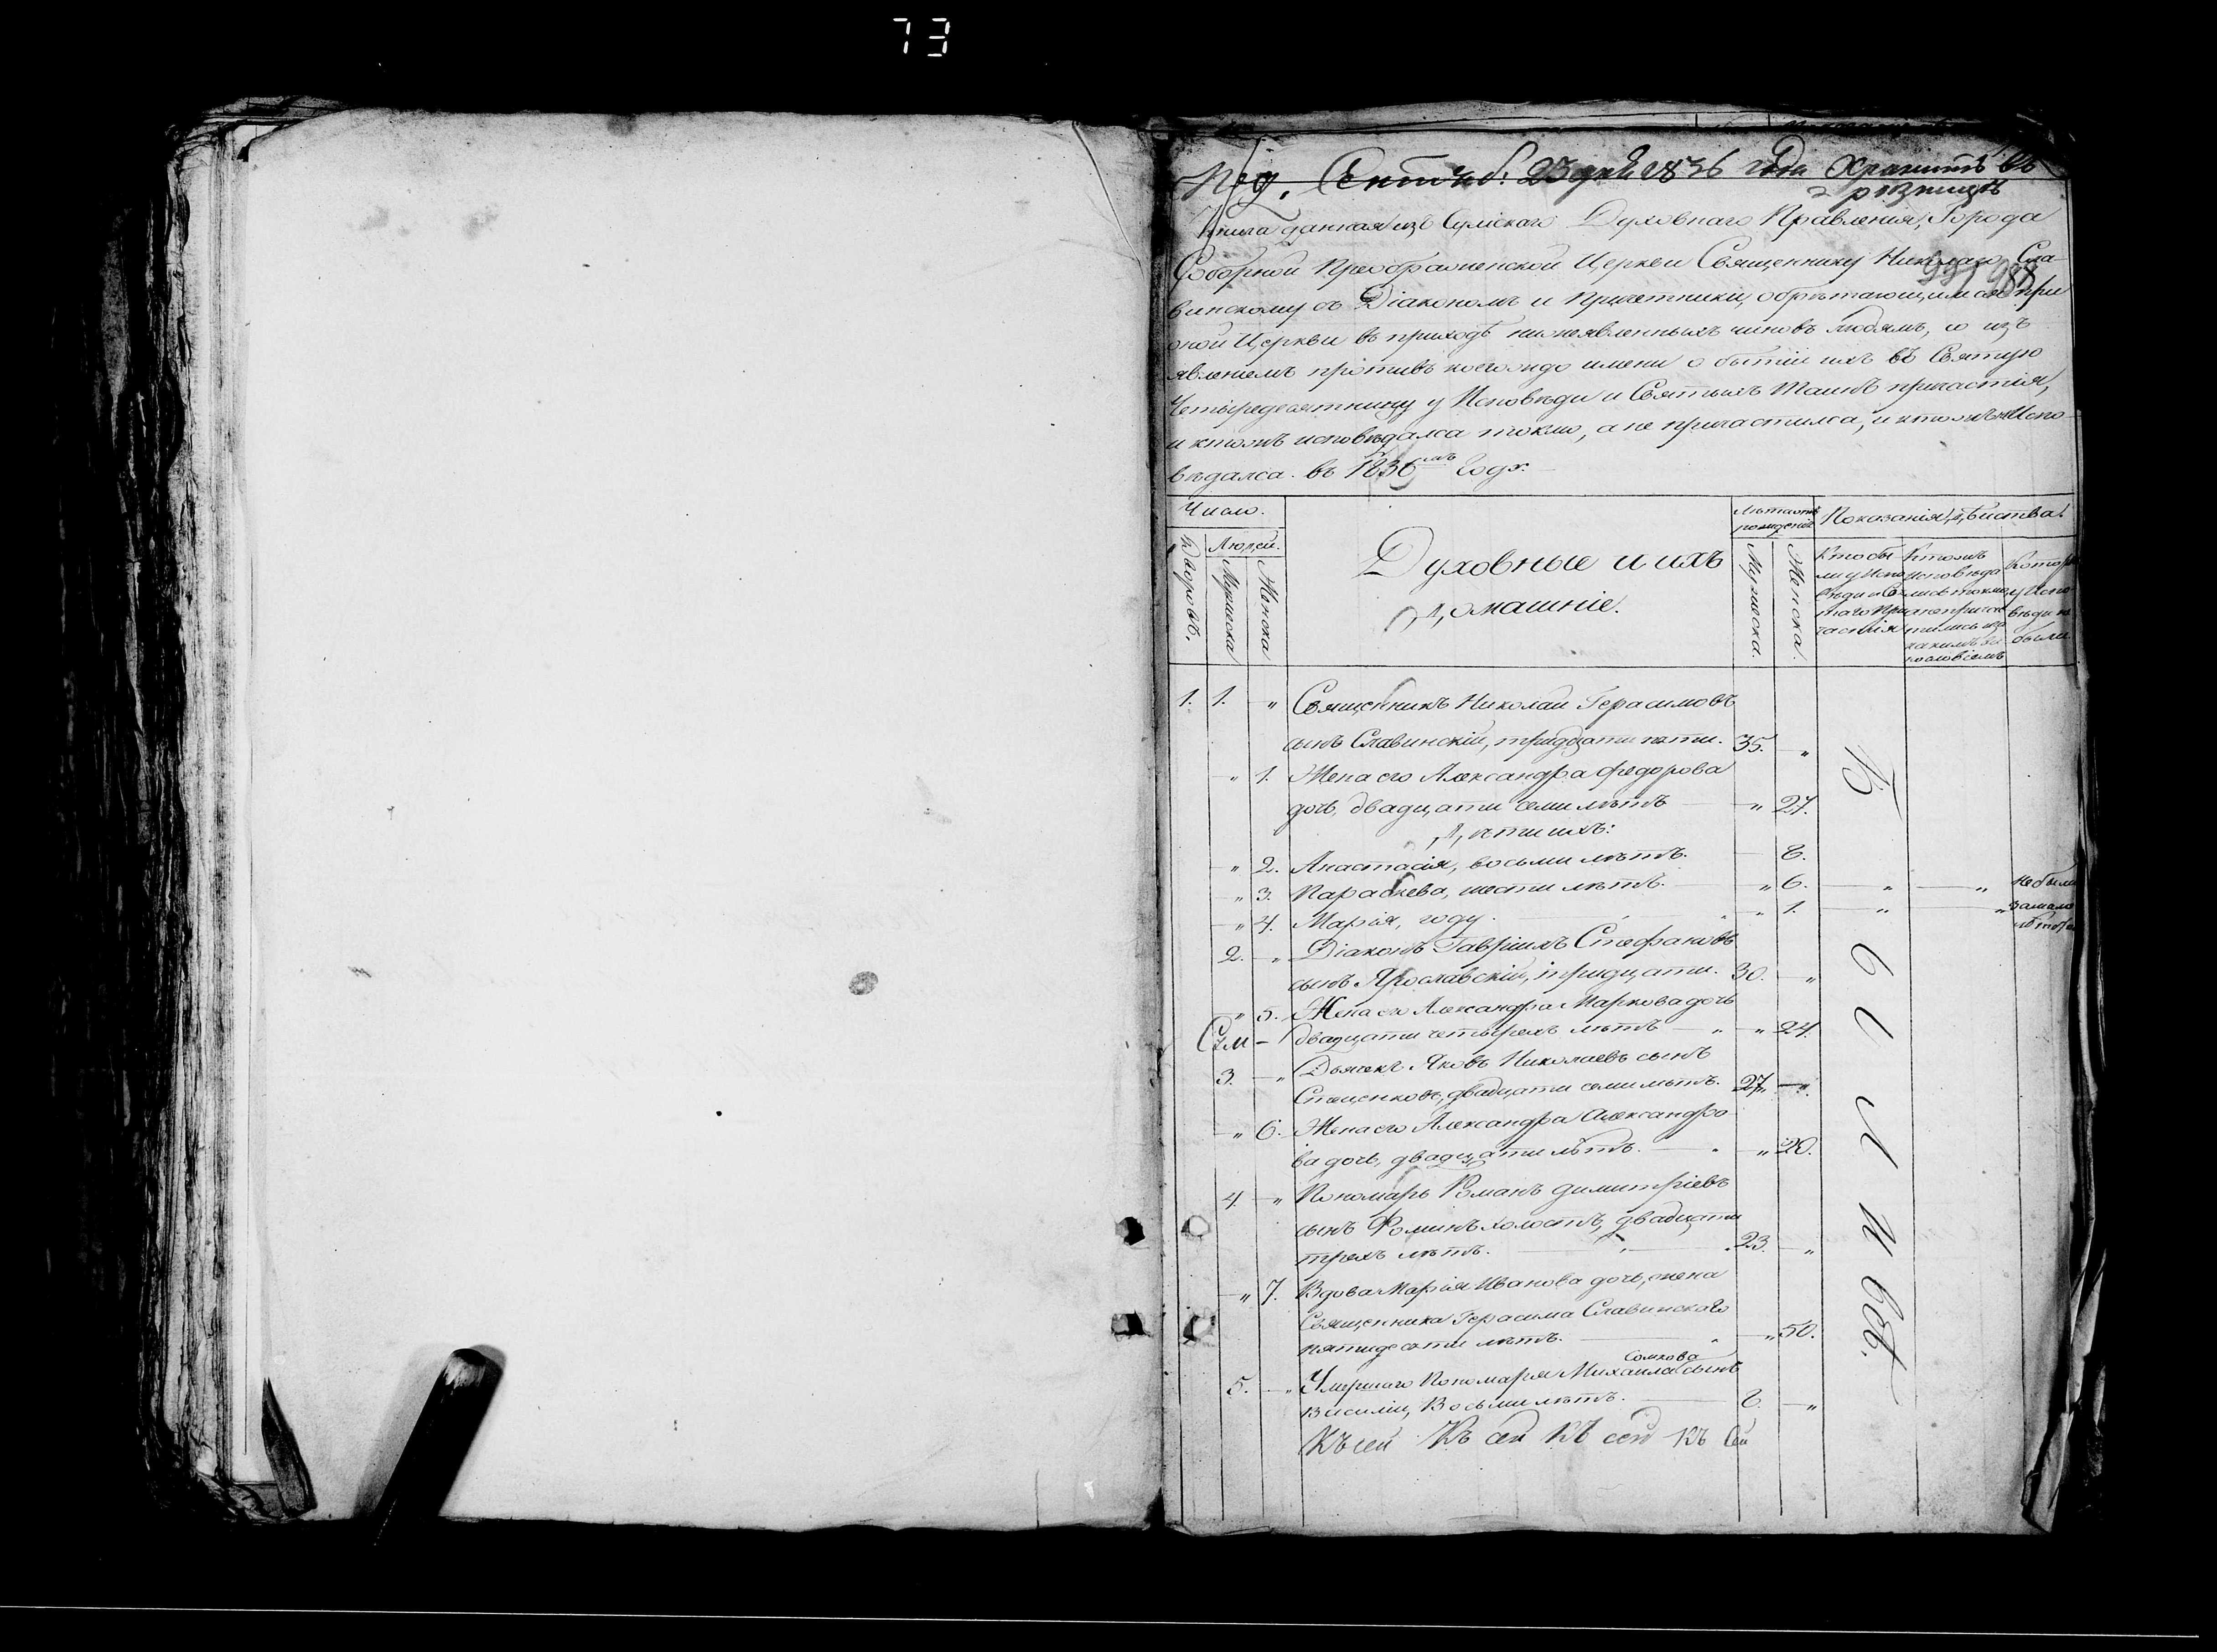 73
Сентяб: 23 дня 1836 года Хранить въ
ризницѣ
Книга данная изъ Сумскаго Духовнаго Правленія, Города
Соборной Преображенской Церкви Священнику Николаю Сла-
988
винскому съ Діакономъ и Причетники, обрѣтающимся при
оной Церкви въ приходѣ нижеявленныхъ чиновъ людямъ, со изъ
явленіемъ противъ коегождо имени о бытіи ихъ въ Святую
Четыредесятницу у Исповѣди и Святыхъ Таинъ причастія,
и ктожъ исповѣдался токмо, а не причастился, и ктожъ не Испо
вѣдался. въ 1836мъ Годѣ.
Число.
Дворовъ.
Людей.
Мужеска
Женска
Духовные и ихъ
Домашніе.
Лѣта отъ
рожденія
Мужеска.
Женска.
Показанія дѣйства.
Кто бы
ли у Испо
вѣди и Свя
таго При
частія
Ктожъ
исповѣда
лись токмо
а не прича
стились и за
какимъ ви
нословіемъ
Котор
у Испо
вѣди не
были
1. 1. „ Священникъ Николай Герасимовъ
сынъ Славинскій, тридцати пяти. 35. „
„ 1. Жена его Александра Федорова
дочь, двадцати семи лѣтъ „ 27.
Дѣти ихъ:
„ 2. Анастасія, восьми лѣтъ. 8.
„ 3. Параскева, шести лѣтъ. „ 6. „ „ не были
„ 4. Марія, году. „ „ 1. „ „ за мало
лѣтст
2. „ Діаконъ Гавріилъ Стефановъ
сынъ Ярославскій, тридцати. 30. „
„ 5. Жена его Александра Маркова дочь
двадцати четырехъ лѣтъ „ „ 24.
3. „ Дьячекъ Яковъ Николаевъ сынъ
двадцати семи лѣтъ. 27. „
„ 6. Жена его Александра Александро
ва дочь, двадцати лѣтъ. „ „ 20.
4. „ Пономарь Романъ Димитріевъ
сынъ Фоминъ холостъ, двадцати
трехъ лѣтъ. „ 23. „
„ 7. Вдова Марія Иванова дочь, жена
Священника Герасима Славинскаго
пятидесяти лѣтъ. „ „ 50.
Сомкова
5. „ Умершаго Пономаря Михаила сынъ
Василій, Восьми лѣтъ. 8. „
Къ сей Къ сей Къ сей Къ Сей
Были всѣ.